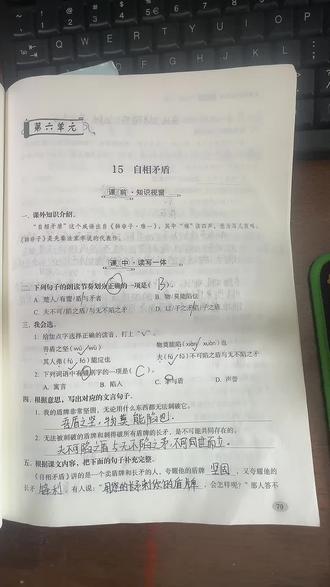 第六单元
15 自相矛盾
课前·知识视窗
一、课外知识介绍。
“自相矛盾”这个成语出自《韩非子·难一》，其中“难”读四声，意为与人责难。
《韩非子》是先秦法家学说的代表作。
课中·读写一体
二、下列句子的朗读节奏划分正确的一项是( B )。
A. 楚人/有鬻/盾与矛者 B. 物/莫能陷也
C. 夫不可/陷之盾/与无不陷之矛 D. 以/子之矛/陷/子之盾
三、我会选。
1. 给加点字选择正确的读音，打上“√”。
吾盾之坚(wú wù) 物莫能陷(xiàn xuàn)也
其人弗(fú fó)能应也 夫(fú fū)不可陷之盾与无不陷之矛
2. 下列词语中有错别字的一项是( C )。
A. 寓言 B. 陷人 D. 声誉
四、根据意思，写出对应的文言句子。
1. 我的盾牌非常坚固，无论用什么东西都无法刺破它。
吾盾之坚，物莫能陷也。
2. 无法被刺破的盾牌和刺得破所有盾牌的长矛，是不可能共同存在的。
夫不可陷之盾与无不陷之矛，不可同世而立。
五、根据课文内容，把下面的句子补充完整。
《自相矛盾》讲的是一个卖盾牌和长矛的人，夸耀他的盾牌 坚固 ，又夸耀他的
长矛 锋利 。有人说：“用您的长矛刺您的盾牌，会怎样呢？”那人答不
79